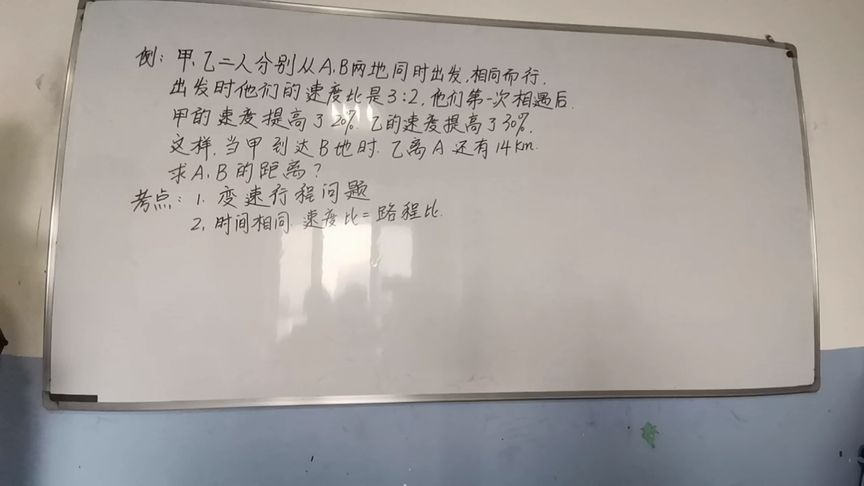 例: 甲、乙二人分别从A、B两地同时出发,相向而行.
出发时他们的速度比是3:2,他们第一次相遇后.
甲的速度提高了20%.乙的速度提高了30%.
这样,当甲到达B地时.乙离A还有14km.
求A、B的距离?
考点: 1. 变速行程问题
2, 时间相同 速度比=路程比.